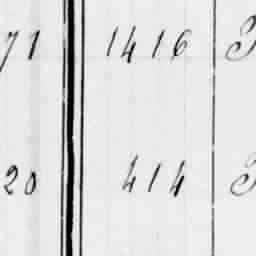 71 1416
20 414